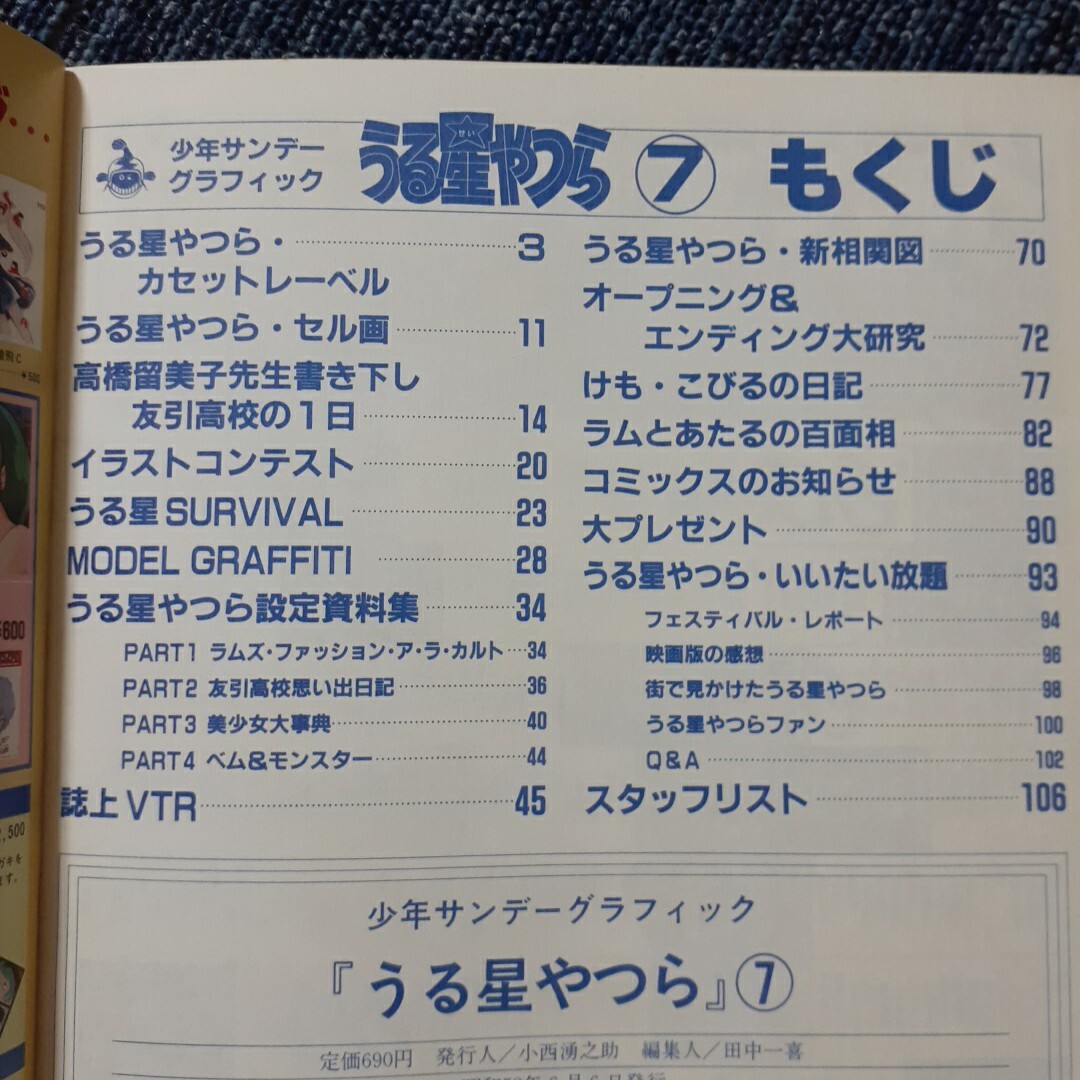 少年サンデー
グラフィック
うる星やつら ⑦ もくじ
せい
うる星やつら・ 3
カセットレーベル
うる星やつら・セル画 11
高橋留美子先生書き下し
友引高校の1日 14
イラストコンテスト 20
うる星SURVIVAL 23
MODEL GRAFFITI 28
うる星やつら設定資料集 34
PART1 ラムズ・ファッション・ア・ラ・カルト 34
PART2 友引高校思い出日記 36
PART3 美少女大事典 40
PART4 ベム&モンスター 44
誌上VTR 45
うる星やつら・新相関図 70
オープニング&
エンディング大研究 72
けも・こびるの日記 77
ラムとあたるの百面相 82
コミックスのお知らせ 88
大プレゼント 90
うる星やつら・いいたい放題 93
フェスティバル・レポート 94
映画版の感想 96
街で見かけたうる星やつら 98
うる星やつらファン 100
Q&A 102
スタッフリスト 106
少年サンデーグラフィック
『うる星やつら』⑦
定価690円 発行人/小西湧之助 編集人/田中一喜